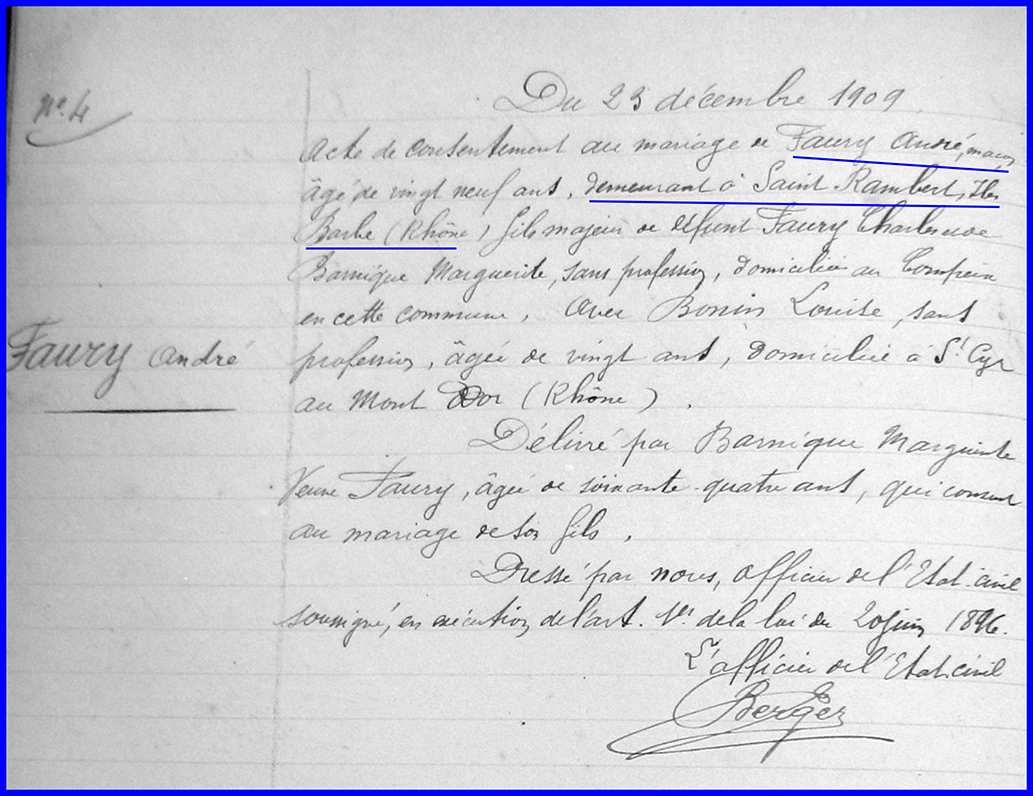 N° 4
Du 23 décembre 1909
Acte de consentement au mariage de Faury André, maçon
âgé de vingt neuf ans, demeurant à Saint Rambert, Ile
Barbe (Rhône) fils majeur de défunt Faury Charles et de
Barnique Marguerite, sans profession, domiciliée au
en cette commune, avec Bonnin Louise, sans
profession, âgée de vingt ans, domiciliée à St Cyr
au Mont Dor (Rhône).
Faury André
Délivré par Barnique Marguerite
Veuve Faury, âgée de soixante-quatre ans, qui consent
au mariage de son fils.
Dressé par nous, officier de l'Etat-civil
soussigné, en exécution de l'art. 1er de la loi du 20 juin 1896.
L'officier de l'Etat-civil
Berger